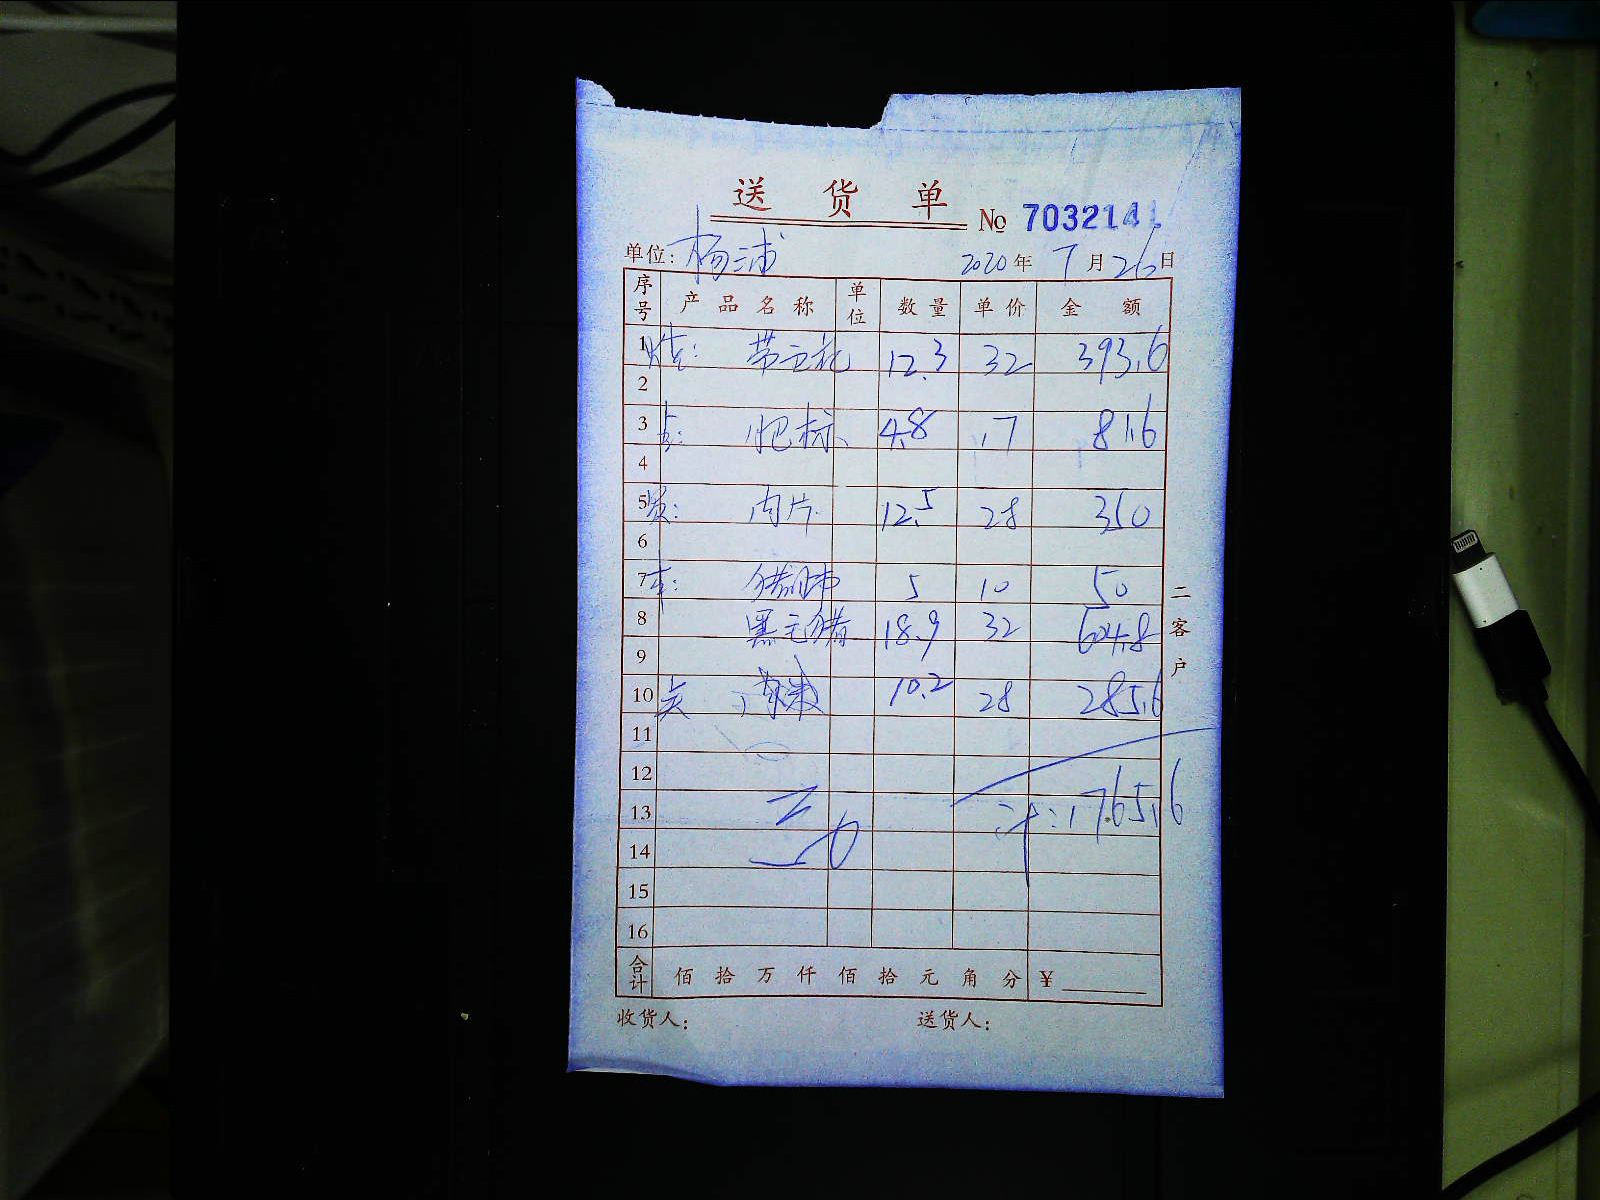 送货单 № 7032141
单位: 杨浦 2020年 7月26日
序号 产品名称 单位 数量 单价 金额
1 烧: 12.3 32 393.6
2
3 肥标 4.8 17 81.6
4
5 肉片 12.5 28 350
6
7 猪肺 5 10 50
8 黑毛猪 18.9 32 604.8
9
10 10.2 28 285.6
11
12
13 计: 1765.6
14
15
16
合计 佰拾万仟佰拾元角分 ¥
收货人: 送货人:
二客户